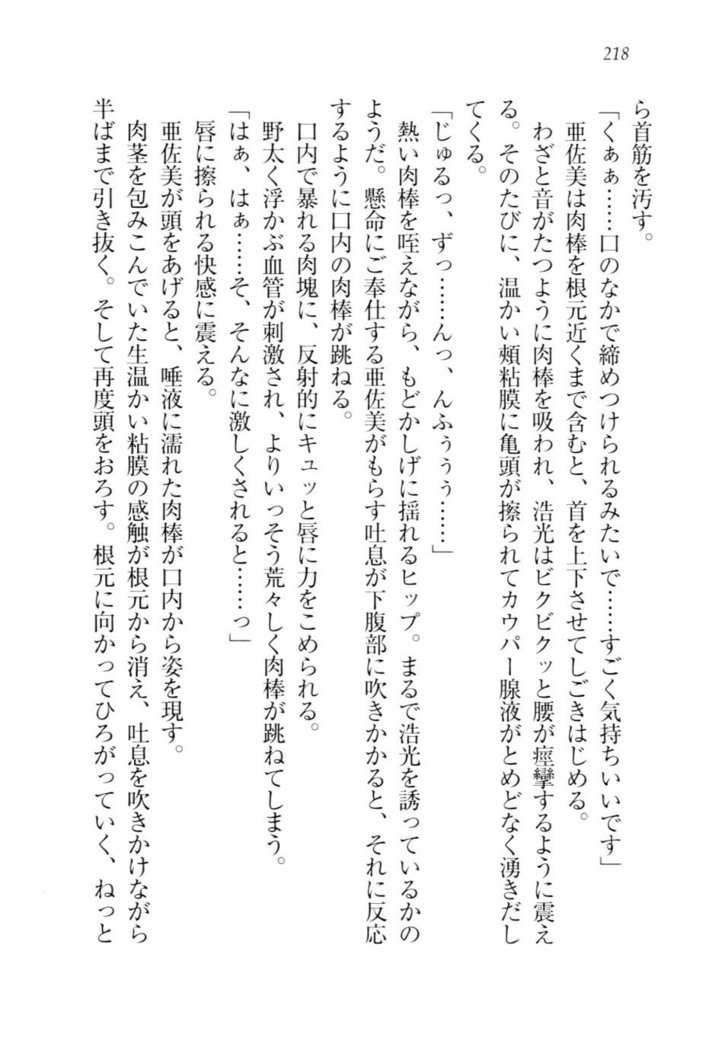 218
ら首筋を汚す。
「くぁぁ……口のなかで締めつけられるみたいで……すごく気持ちいいです」
亜佐美は肉棒を根元近くまで含むと、首を上下させてしごきはじめる。
わざと音がたつように肉棒を吸われ、浩光はビクビクッと腰が痙攣するように震え
る。そのたびに、温かい頬粘膜に亀頭が擦られてカウパー腺液がとめどなく湧きだし
てくる。
「じゅるっ、ずっ……んっ、んふぅぅぅ……」
熱い肉棒を咥えながら、もどかしげに揺れるヒップ。まるで浩光を誘っているかの
ようだ。懸命にご奉仕する亜佐美がもらす吐息が下腹部に吹きかかると、それに反応
するように口内の肉棒が跳ねる。
口内で暴れる肉塊に、反射的にキュッと唇に力をこめられる。
野太く浮かぶ血管が刺激され、よりいっそう荒々しく肉棒が跳ねてしまう。
「はぁ、はぁ……そ、そんなに激しくされると……っ」
唇に擦られる快感に震える。
亜佐美が頭をあげると、唾液に濡れた肉棒が口内から姿を現す。
肉茎を包みこんでいた生温かい粘膜の感触が根元から消え、吐息を吹きかけながら
半ばまで引き抜く。そして再度頭をおろす。根元に向かってひろがっていく、ねっと